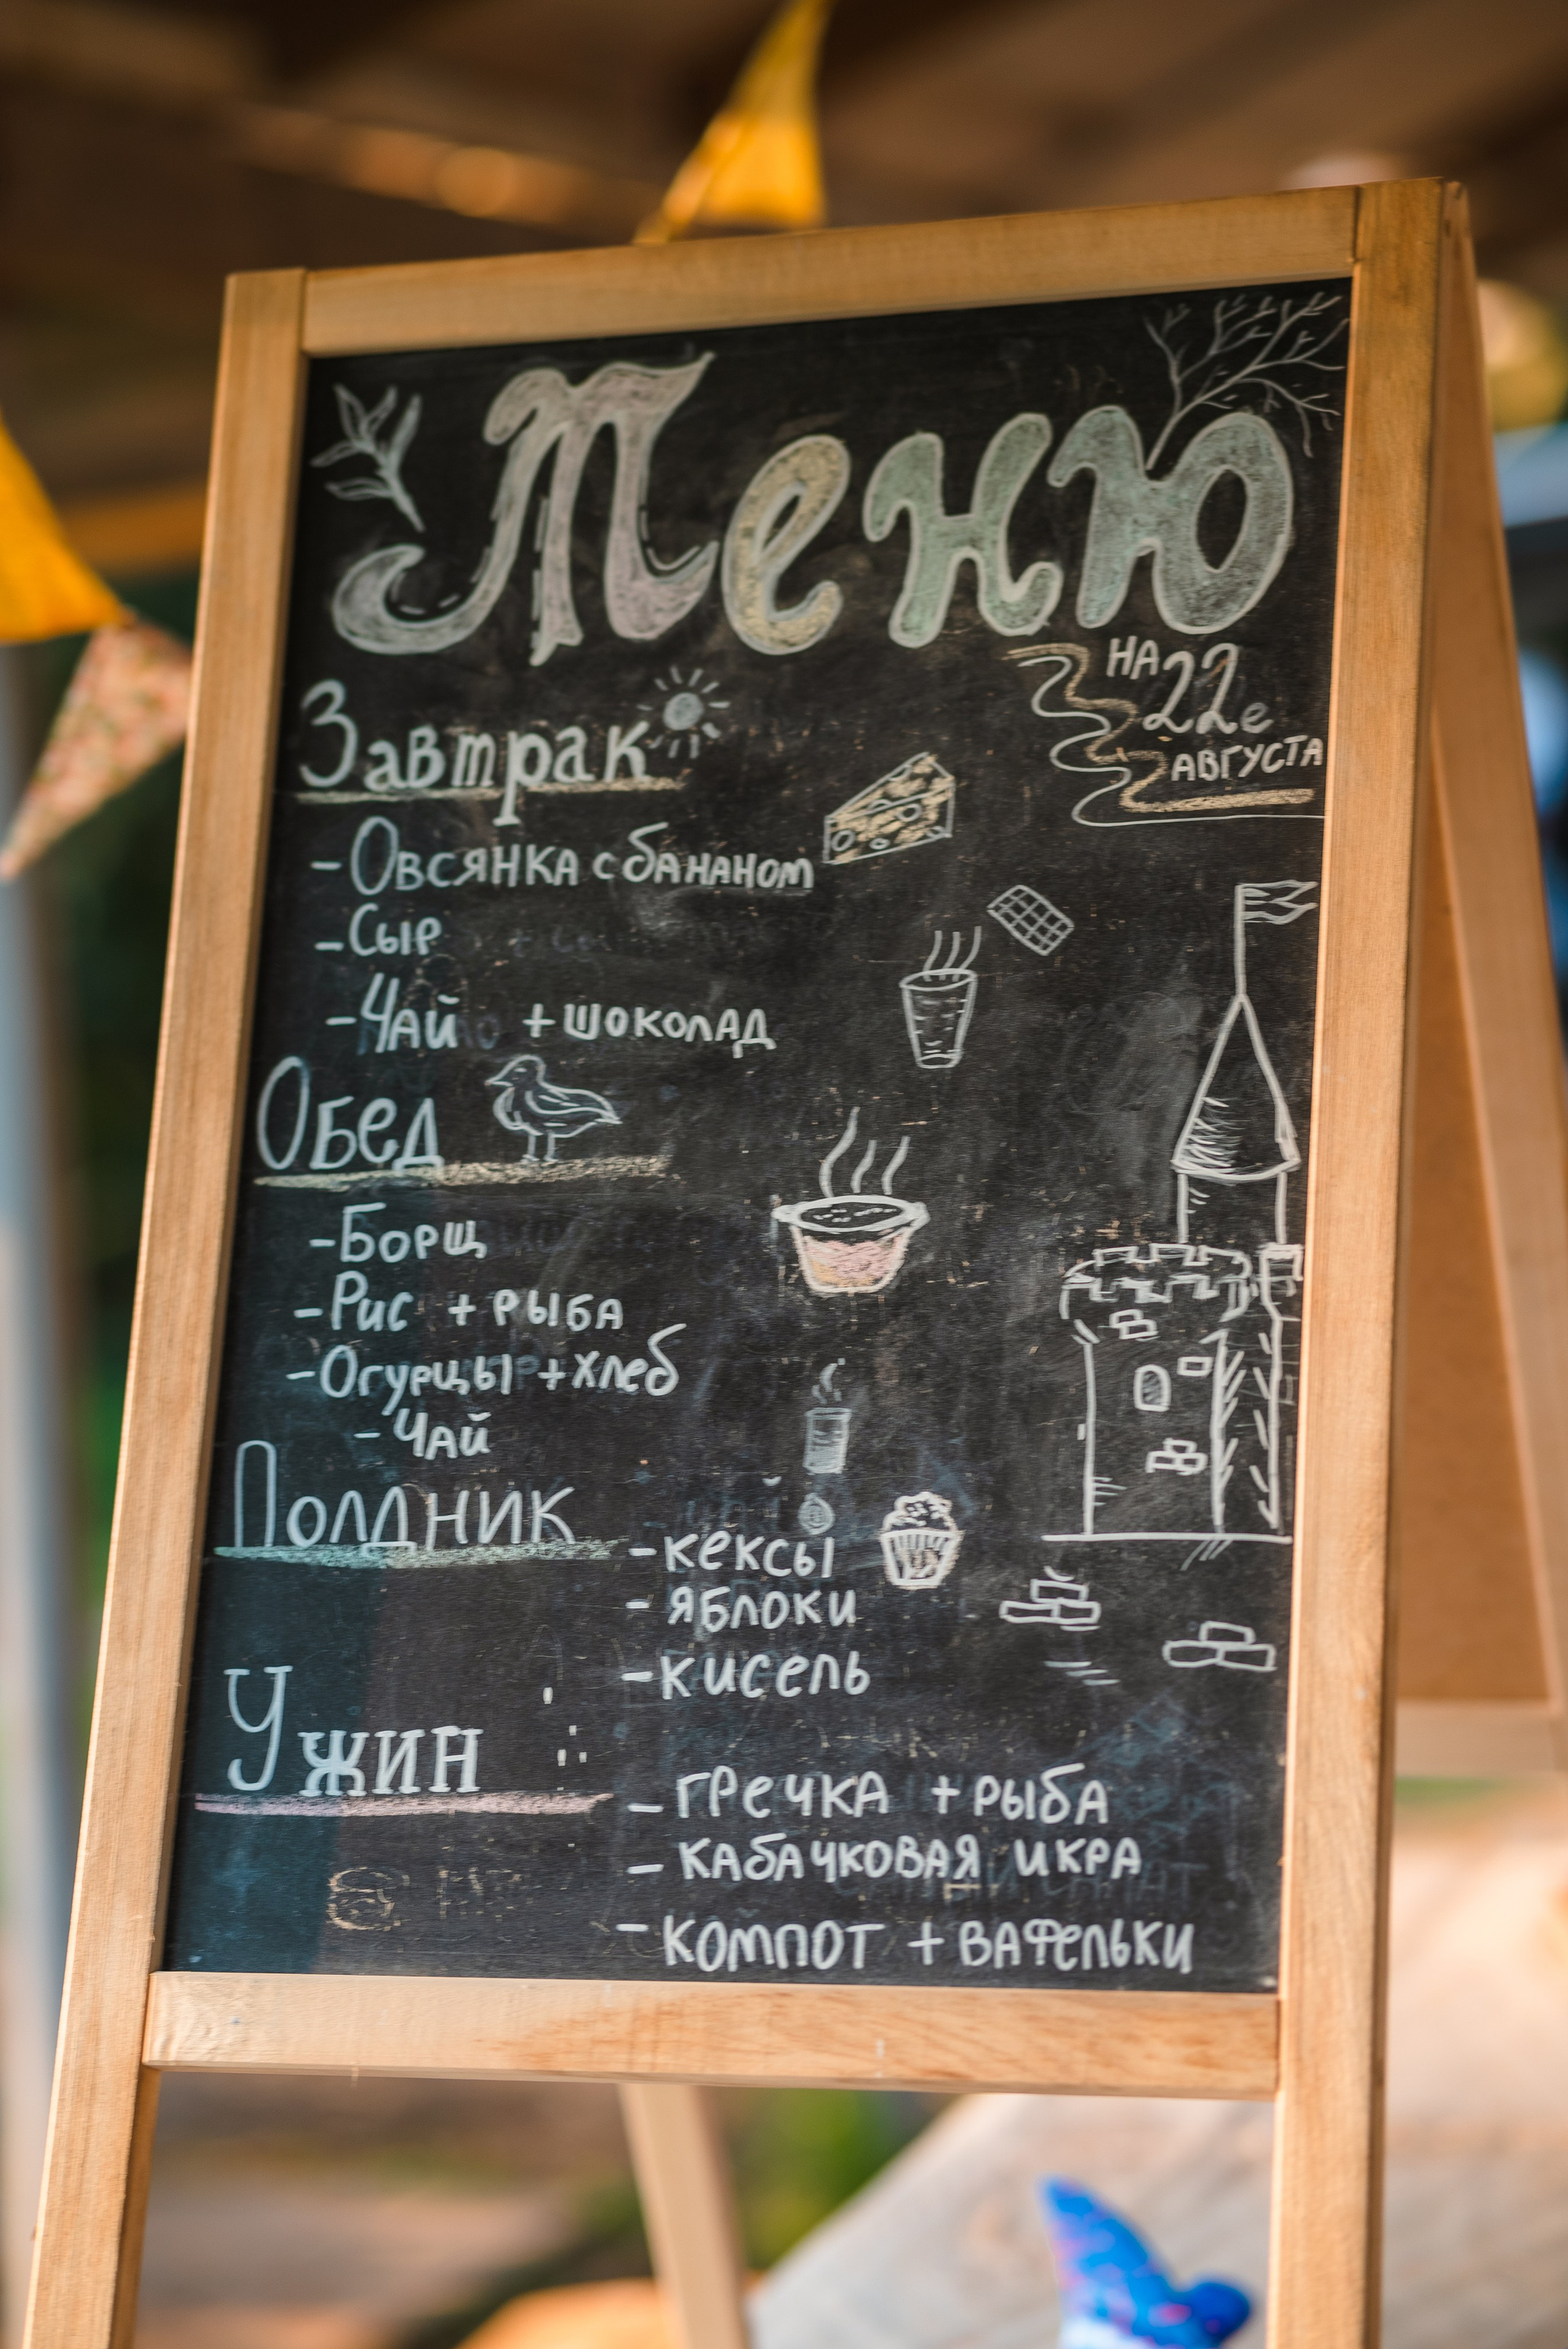 Меню
на 22е
августа
Завтрак
- Овсянка с бананом
- Сыр
- Чай + шоколад
Обед
- Борщ
- Рис + рыба
- Огурцы + хлеб
- Чай
Полдник
- кексы
- яблоки
- кисель
Ужин
- гречка + рыба
- кабачковая икра
- компот + вафельки